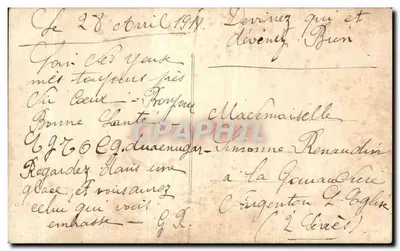 Le 28 Avril 191
Loin des yeux
mes toujours près
du Coeur — Bonjour
Bonne Santé
Regardez dans une
glace, et vous aurez
celui qui vous
embrasse — G R
Devinez qui et
devenez Bien
Mademoiselle
Simonne Renaudin
a la
Argenton L'Eglise
(2 Sèvres)
Delcampe